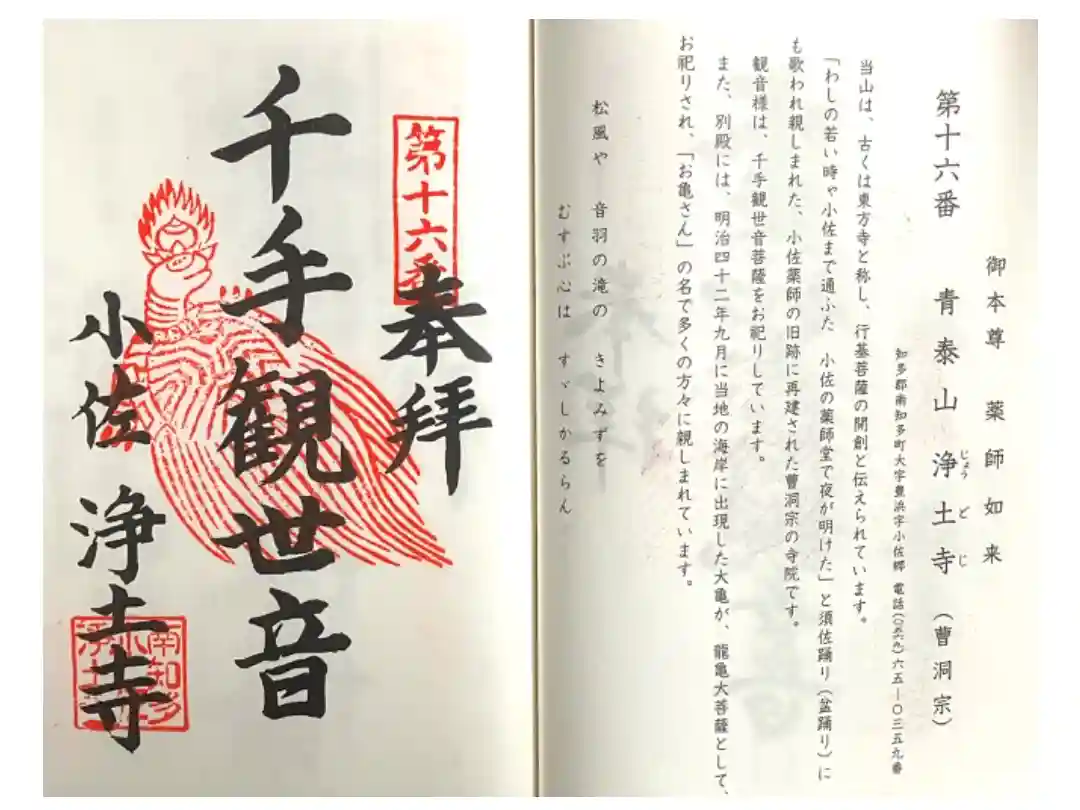 御本尊 薬師如来
第十六番 青泰山 浄土寺 (曹洞宗)
じょうどじ
知多郡南知多町大字豊浜字小佐郷 電話(〇五六九)六五ー〇三五九番
当山は、古くは東方寺と称し、行基菩薩の開創と伝えられています。
「わしの若い時ゃ小佐まで通ふた 小佐の薬師堂で夜が明けた」と須佐踊り(盆踊り)に
も歌われ親しまれた、小佐薬師の旧跡に再建された曹洞宗の寺院です。
観音様は、千手観世音菩薩をお祀りしています。
また、別殿には、明治四十二年九月に当地の海岸に出現した大亀が、龍亀大菩薩として、
お祀りされ、「お亀さん」の名で多くの方々に親しまれています。
松風や 音羽の滝の きよみずを
むすぶ心は すゞしかるらん
第十六番
奉拝
千手観世音
小佐 浄土寺
南知多